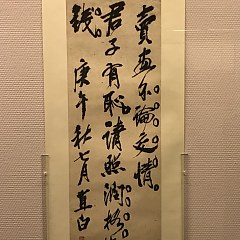 賣画不論交情。
君子有恥請照潤格出
錢。庚午秋七月直白